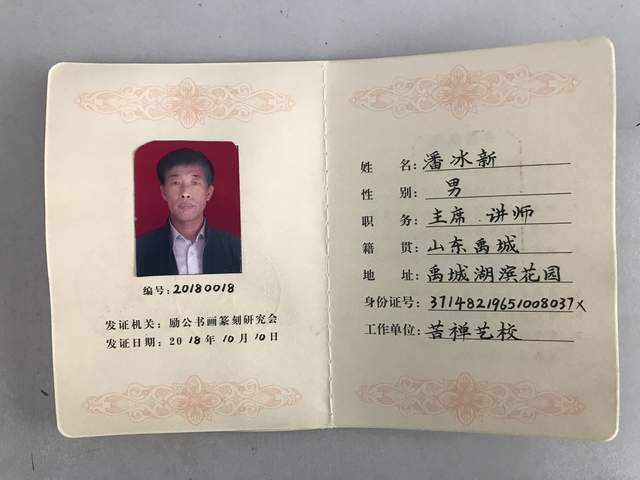 编号:20180018
发证机关：励公书画篆刻研究会
发证日期：2018年10月10日
姓 名:潘冰新
性 别: 男
职 务:主席 讲师
籍 贯:山东禹城
地 址:禹城湖滨花园
身份证号:37148219651008037X
工作单位:苦禅艺校